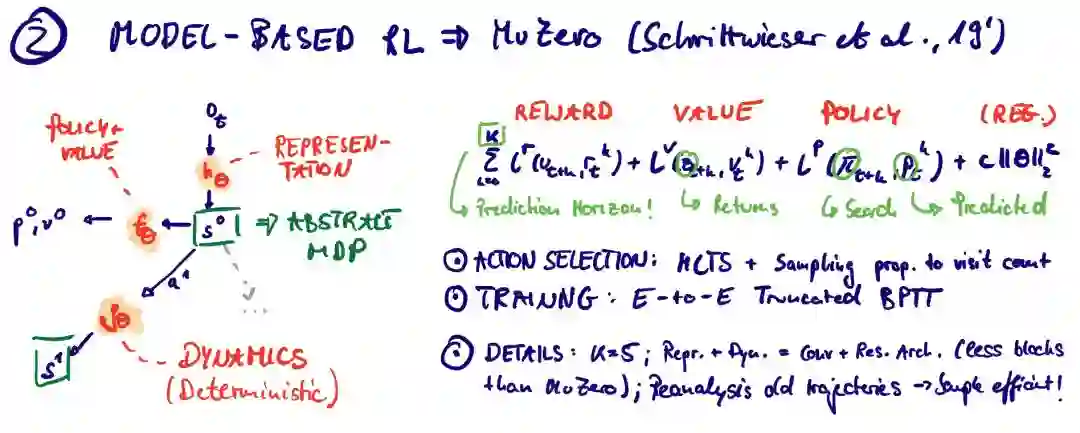 ② MODEL-BASED RL ⇒ MuZero (Schrittwieser et al., 19')
POLICY+
VALUE
O_t
REPRESEN-
TATION
h_θ
p⁰, v⁰ ← f_θ ← s⁰ ⇒ ABSTRACT
MDP
a¹
...
g_θ
s¹
DYNAMICS
(Deterministic)
REWARD VALUE POLICY (REG.)
K
Σ l^r(u_{t+k}, r_t^k) + l^v(z_{t+k}, v_t^k) + l^p(π_{t+k}, p_t^k) + c||θ||₂²
k=0
↳ Prediction Horizon! ↳ Returns ↳ Search ↳ Predicted
⊙ ACTION SELECTION: MCTS + Sampling prop. to visit count
⊙ TRAINING: E-to-E Truncated BPTT
⊙ DETAILS: K=5; Repr. + Dyn. = Conv + Res. Arch. (less blocks
than MuZero); Reanalysis old trajectories → Sample efficient!